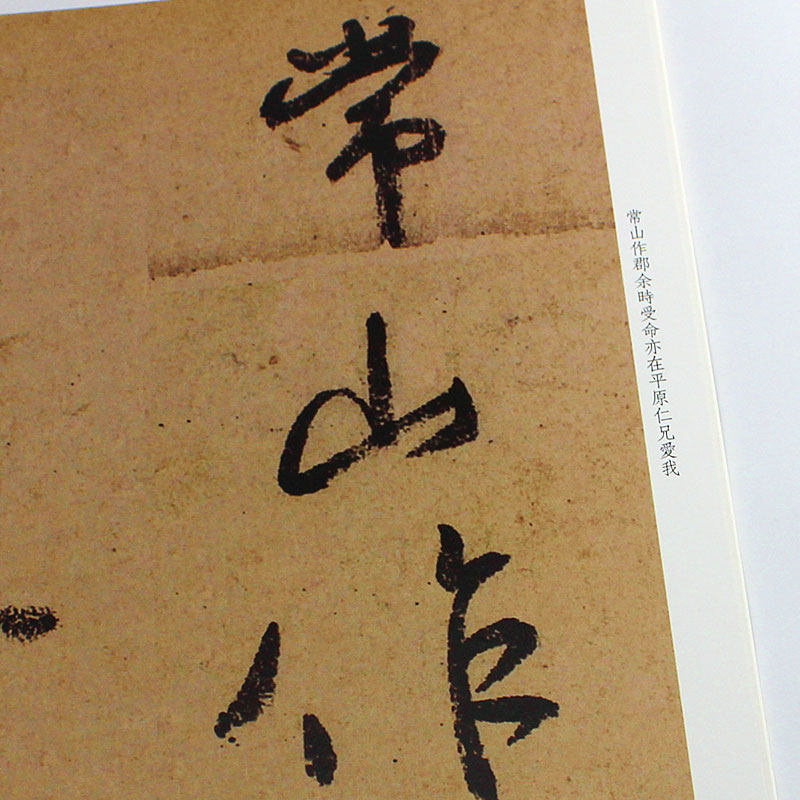 常山作郡余時受命亦在平原仁兄愛我
常山作